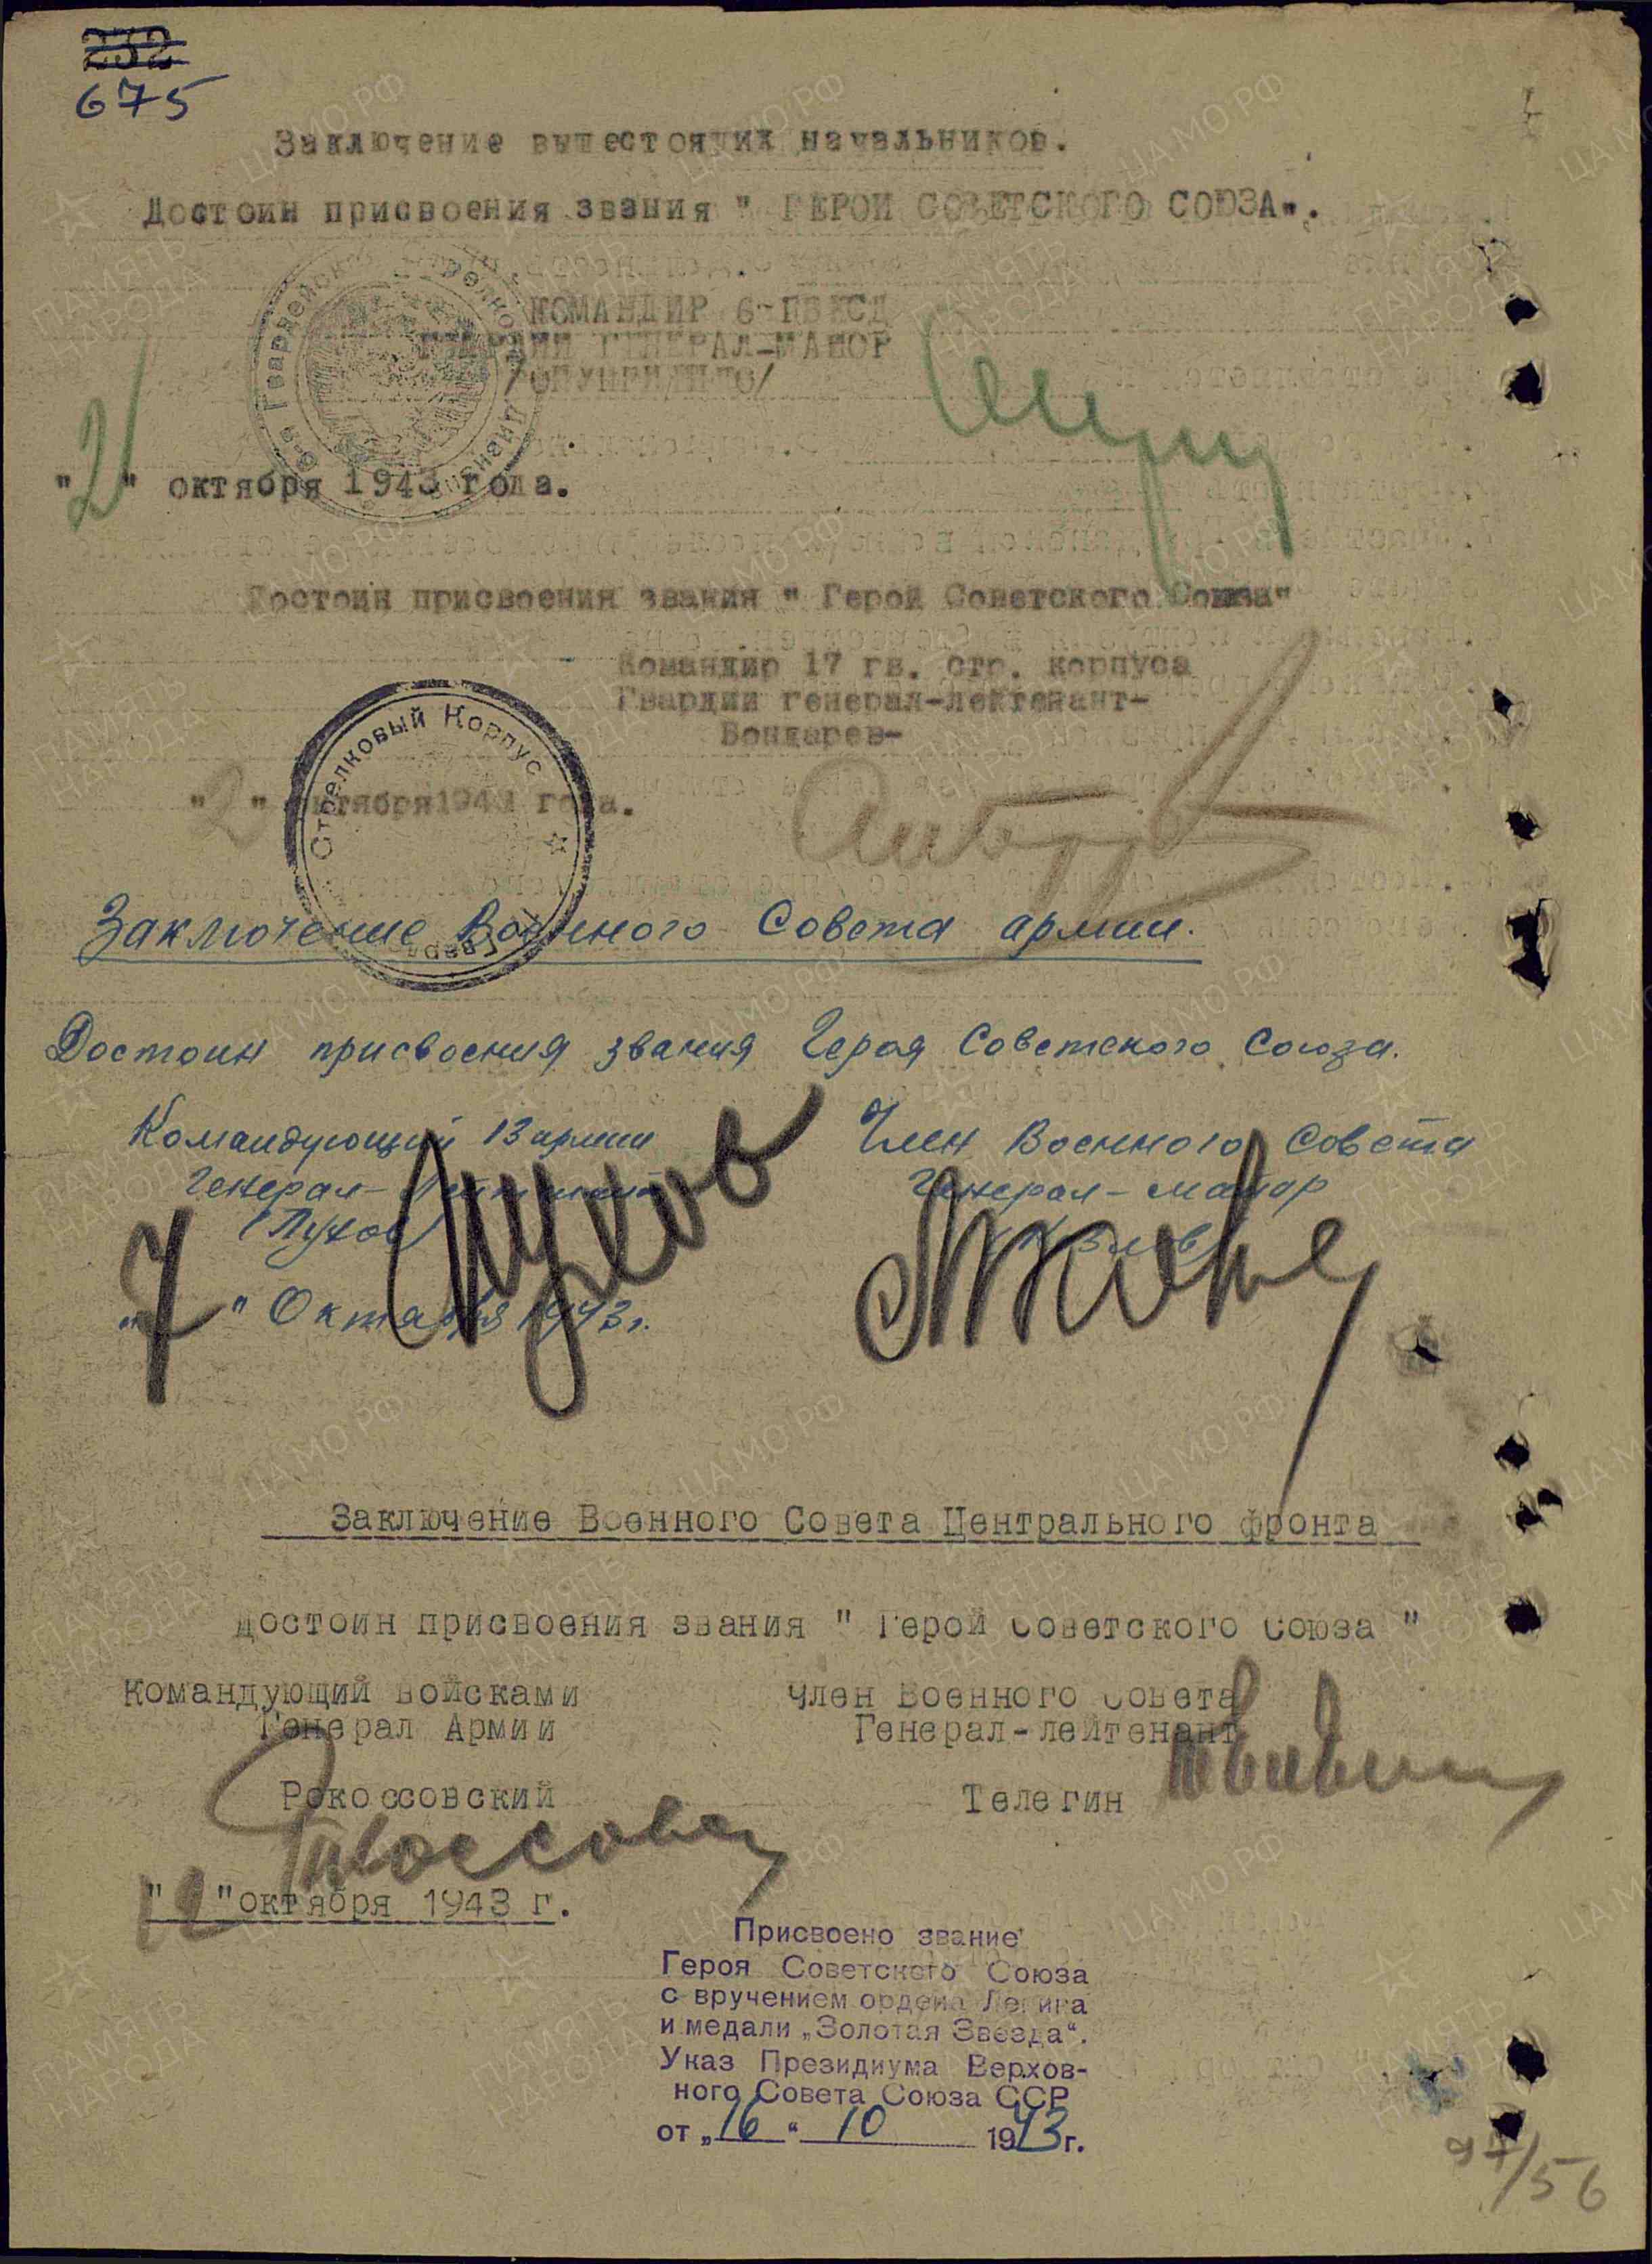 232
675
Заключение вышестоящих начальников.
Достоин присвоения звания " ГЕРОЙ СОВЕТСКОГО СОЮЗА".
КОМАНДИР 6-ГВКСД
ГВАРДИИ ГЕНЕРАЛ-МАЙОР
/ОНУПРИЕНКО/
"2" октября 1943 года.
Достоин присвоения звания " Герой Советского Союза"
Командир 17 гв. стр. корпуса
Гвардии генерал-лейтенант-
Бондарев-
Стрелковый Корпус
"2" октября 1943 года.
Заключение Военного Совета армии.
Достоин присвоения звания Героя Советского Союза.
Командующий 13 армии Член Военного Совета
Генерал-Лейтенант Генерал-майор
(Пухов) (Козлов)
Пухов
"7" Октября 1943 г.
Заключение Военного Совета Центрального фронта
Достоин присвоения звания " Герой Советского Союза "
Командующий войсками Член Военного Совета
Генерал Армии Генерал-лейтенант
Рокоссовский Телегин
"12"октября 1943 г.
Присвоено звание
Героя Советского Союза
с вручением ордена Ленина
и медали „Золотая Звезда“.
Указ Президиума Верхов-
ного Совета Союза ССР
от „16“ 10 1943 г.
97/56
ЦА МО РФ
ПАМЯТЬ НАРОДА